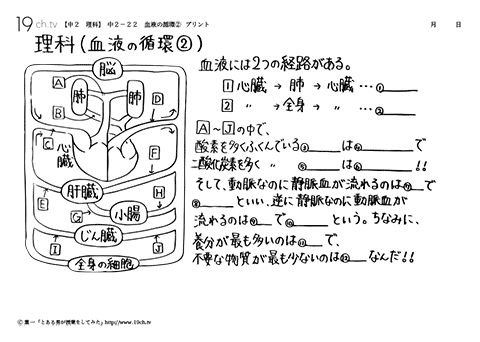 19ch.tv 【中2 理科】 中2-22 血液の循環② プリント
月 日
理科(血液の循環②)
脳
A
肺
肺
D
B
C
心臓
F
肝臓
E
H
G
小腸
じん臓
I
J
全身の細胞
血液には2つの経路がある。
1 心臓 → 肺 → 心臓 … ①
2 〃 → 全身 → 〃 … ②
A~Jの中で、
酸素を多くふくんでいる③ は④ で
二酸化炭素を多く ⑤ は⑥ !!
そして、動脈なのに静脈血が流れるのは⑦ で
⑧ といい、逆に静脈なのに動脈血が
流れるのは⑨ で⑩ という。ちなみに、
養分が最も多いのは⑪ で、
不要な物質が最も少ないのは⑫ なんだ!!
© 葉一「とある男が授業をしてみた」http://www.19ch.tv